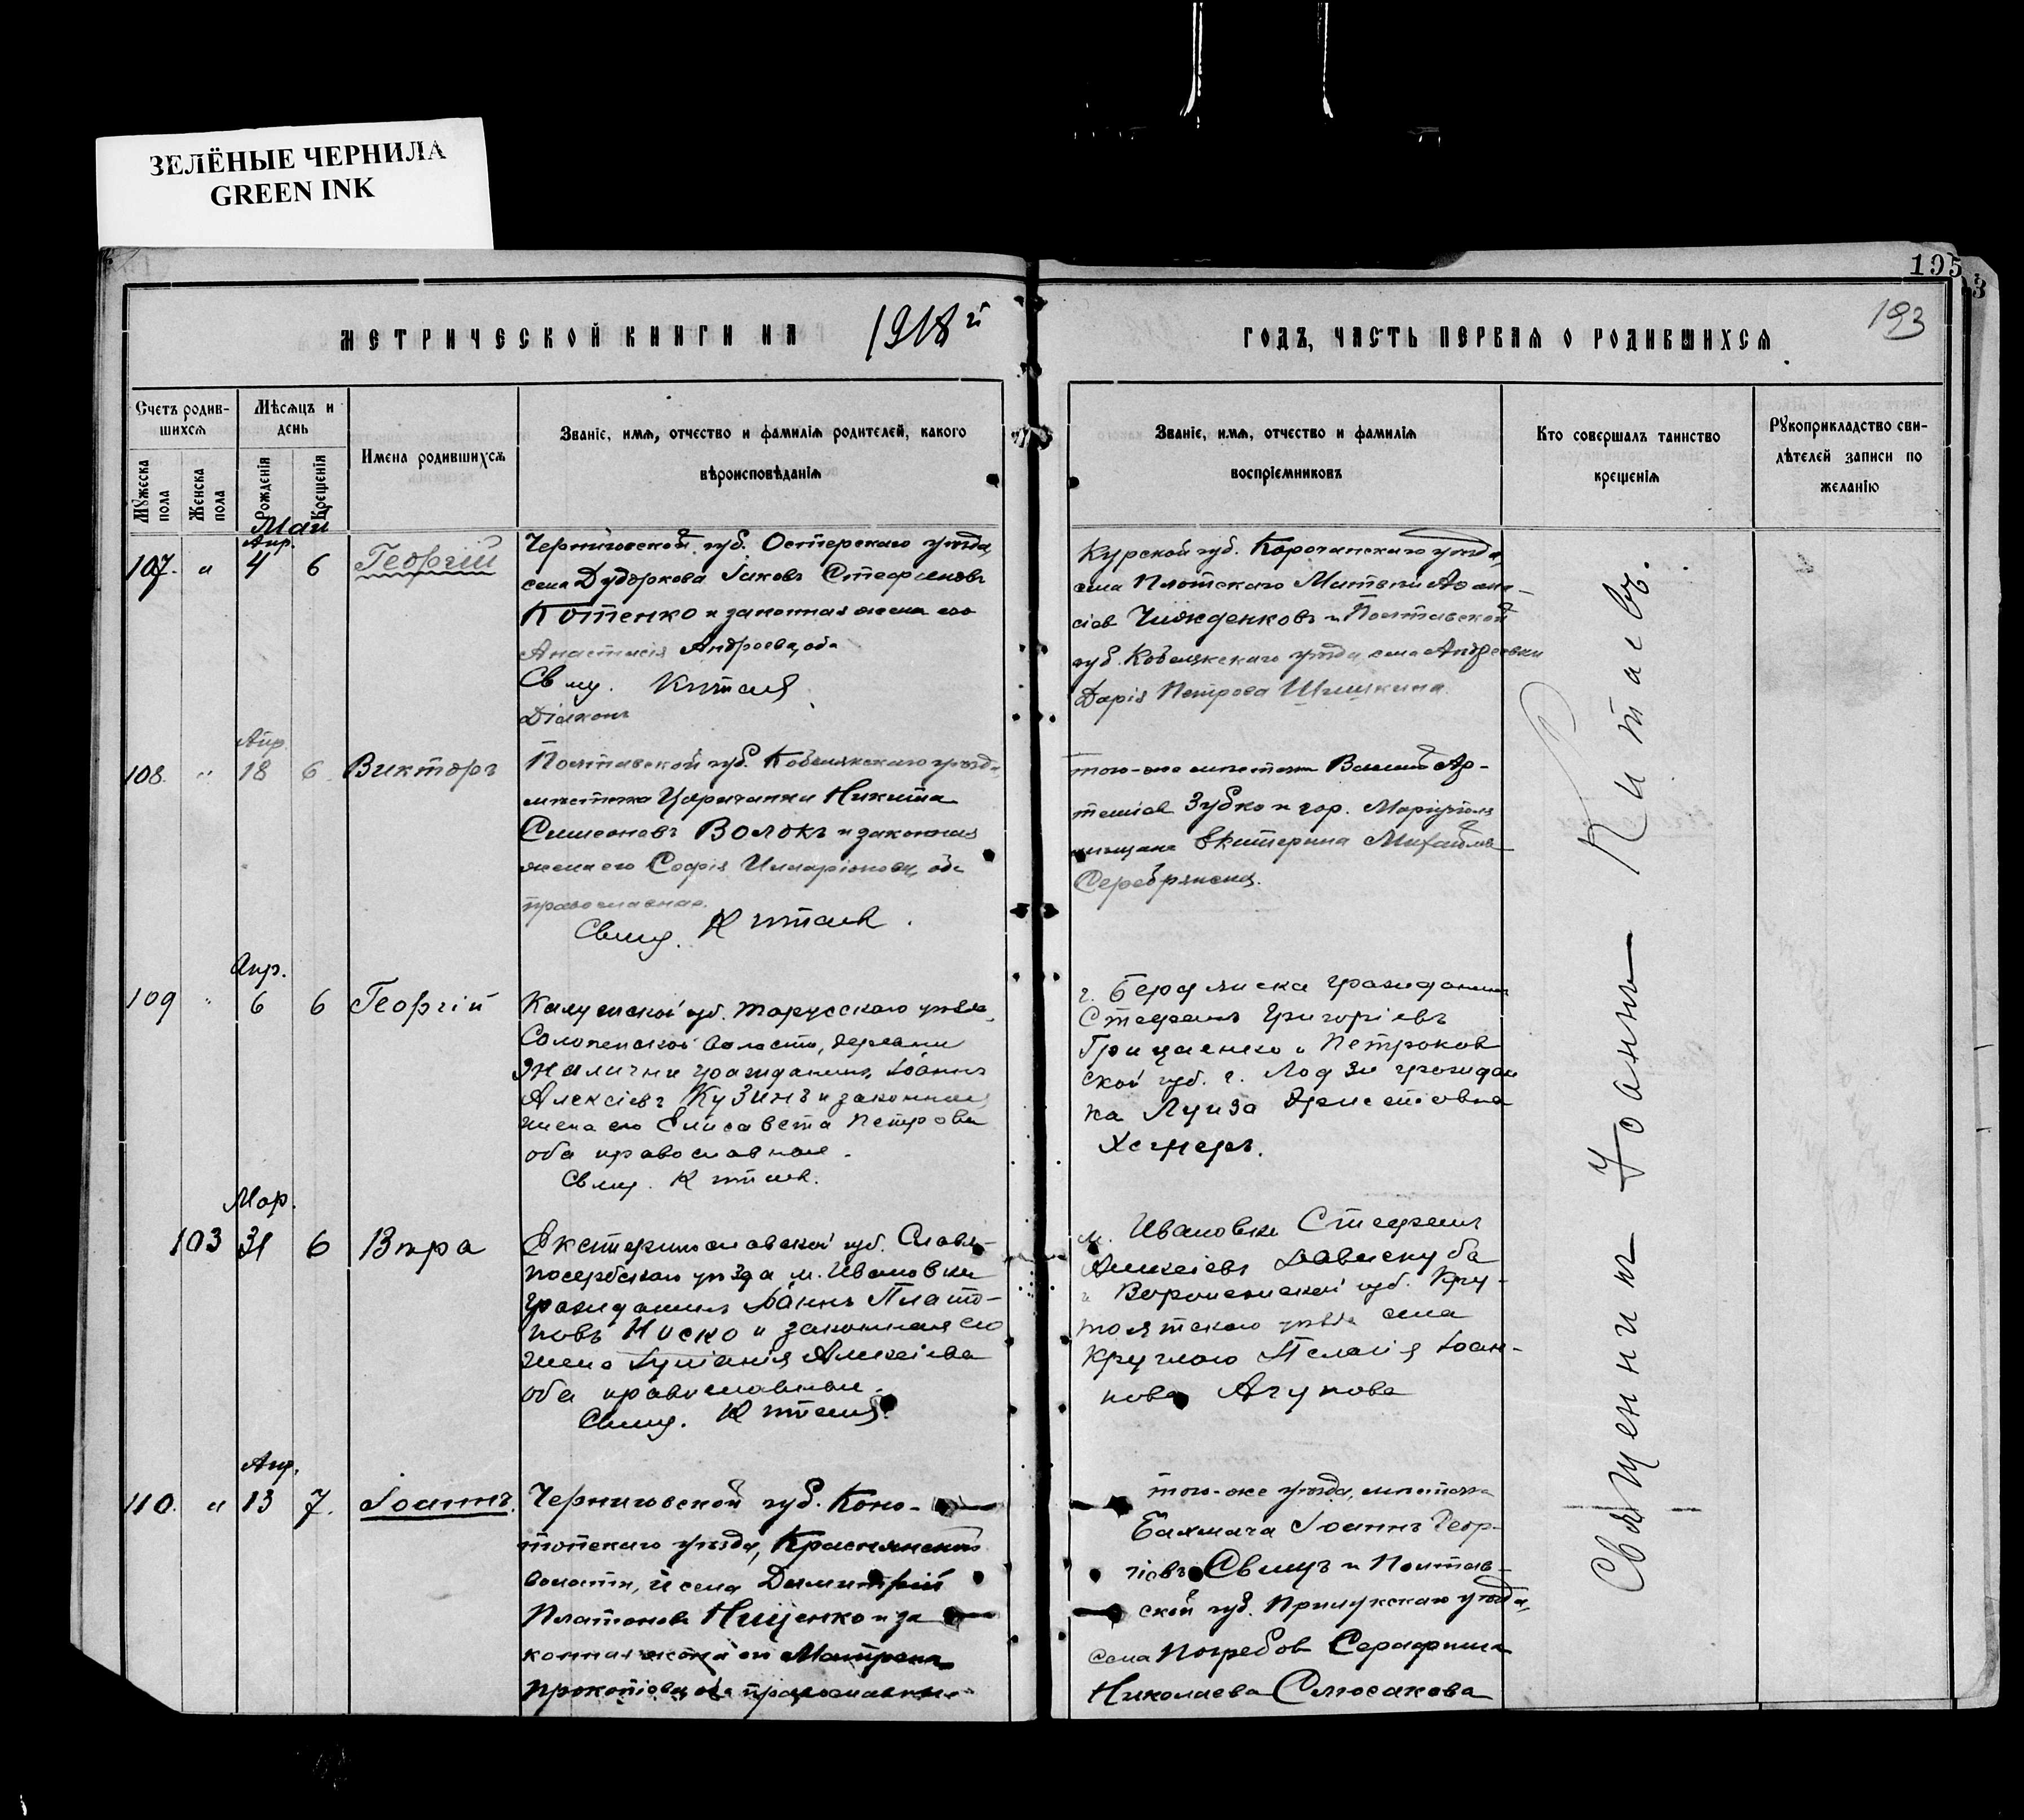 ЗЕЛЁНЫЕ ЧЕРНИЛА
GREEN INK
195
193
МЕТРИЧЕСКОЙ КНИГИ НА 1918й
ГОДЪ, ЧАСТЬ ПЕРВАЯ О РОДИВШИХСЯ
Счетъ родив-
шихся
Мѣсяцъ и
день
Мужеска
пола
Женска
пола
Рожденія
Крещенія
Имена родившихся
Званіе, имя, отчество и фамилія родителей, какого
вѣроисповѣданія
Званіе, имя, отчество и фамилія
воспріемниковъ
Кто совершалъ таинство
крещенія
Рукоприкладство сви-
дѣтелей записи по
желанію
Май
Апр.
107. " 4 6 Георгій
Черниговской губ. Остерскаго уѣзда,
села Дударкова Іаковъ Стефановъ
Котенко и законная жена его
Анастасія Андреева, оба
Свящ. Китаев
Діаконъ
Курской губ. Корочанскаго уѣзда,
села Плотскаго Матвей Афана-
сіев Чижденковъ и Полтавской
губ. Кобелякскаго уѣзда села Андреевки
Дарія Петрова Шишкина.
Апр.
108. " 18 6 Викторъ
Полтавской губ. Кобелякскаго уѣзда,
мѣстечка Царичанки Никита
Симеоновъ Волокъ и законная
жена его Софія Иларіонова, оба
православные.
Свящ. Китаев.
того-же мѣстечка Ар-
Зубко и гор. Маріуполя
Екатерина Михайлова
Серебрянская.
Апр.
109 " 6 6 Георгій
Калужской губ. Тарусскаго уѣзда,
Солопенской волости, деревни
гражданинъ Іоаннъ
Алексіевъ Кузинъ и законная
жена его Елисавета Петрова
оба православные.
Свящ. Китаев.
г. Бердянска гражданинъ
Стефанъ Григоріевъ
Гриценко и Петроков
ской губ. г. Лодзи граждан
ка Луиза Эрнестовна
Мар.
103 31 6 Вѣра
Екатеринославской губ. Славя-
носербскаго уѣзда м. Ивановки
гражданинъ Іоаннъ Плато-
новъ Носко и законная его
жена Іуліанія Алексіева
оба православные.
Свящ. Китаев.
м. Ивановки Стефанъ
Алексіевъ
и Воронежской губ. Кру-
тоятскаго уѣзда села
Круглаго Пелагія Іоан-
нова Агупова
Апр.
110. " 13 7. Іоаннъ.
Черниговской губ. Коно-
топскаго уѣзда, Краснянской
волости, села Димитрій
Платоновъ Нищенко и за
конная жена его Матрона
Прокопіева, оба православные
того-же уѣзда, мѣстечка
Бахмача Іоаннъ Геор-
гіевъ и Полтав-
ской губ. Прилукскаго уѣзда,
села Погребов Серафима
Николаева Слюсакова
Священникъ Іоаннъ Китаевъ.